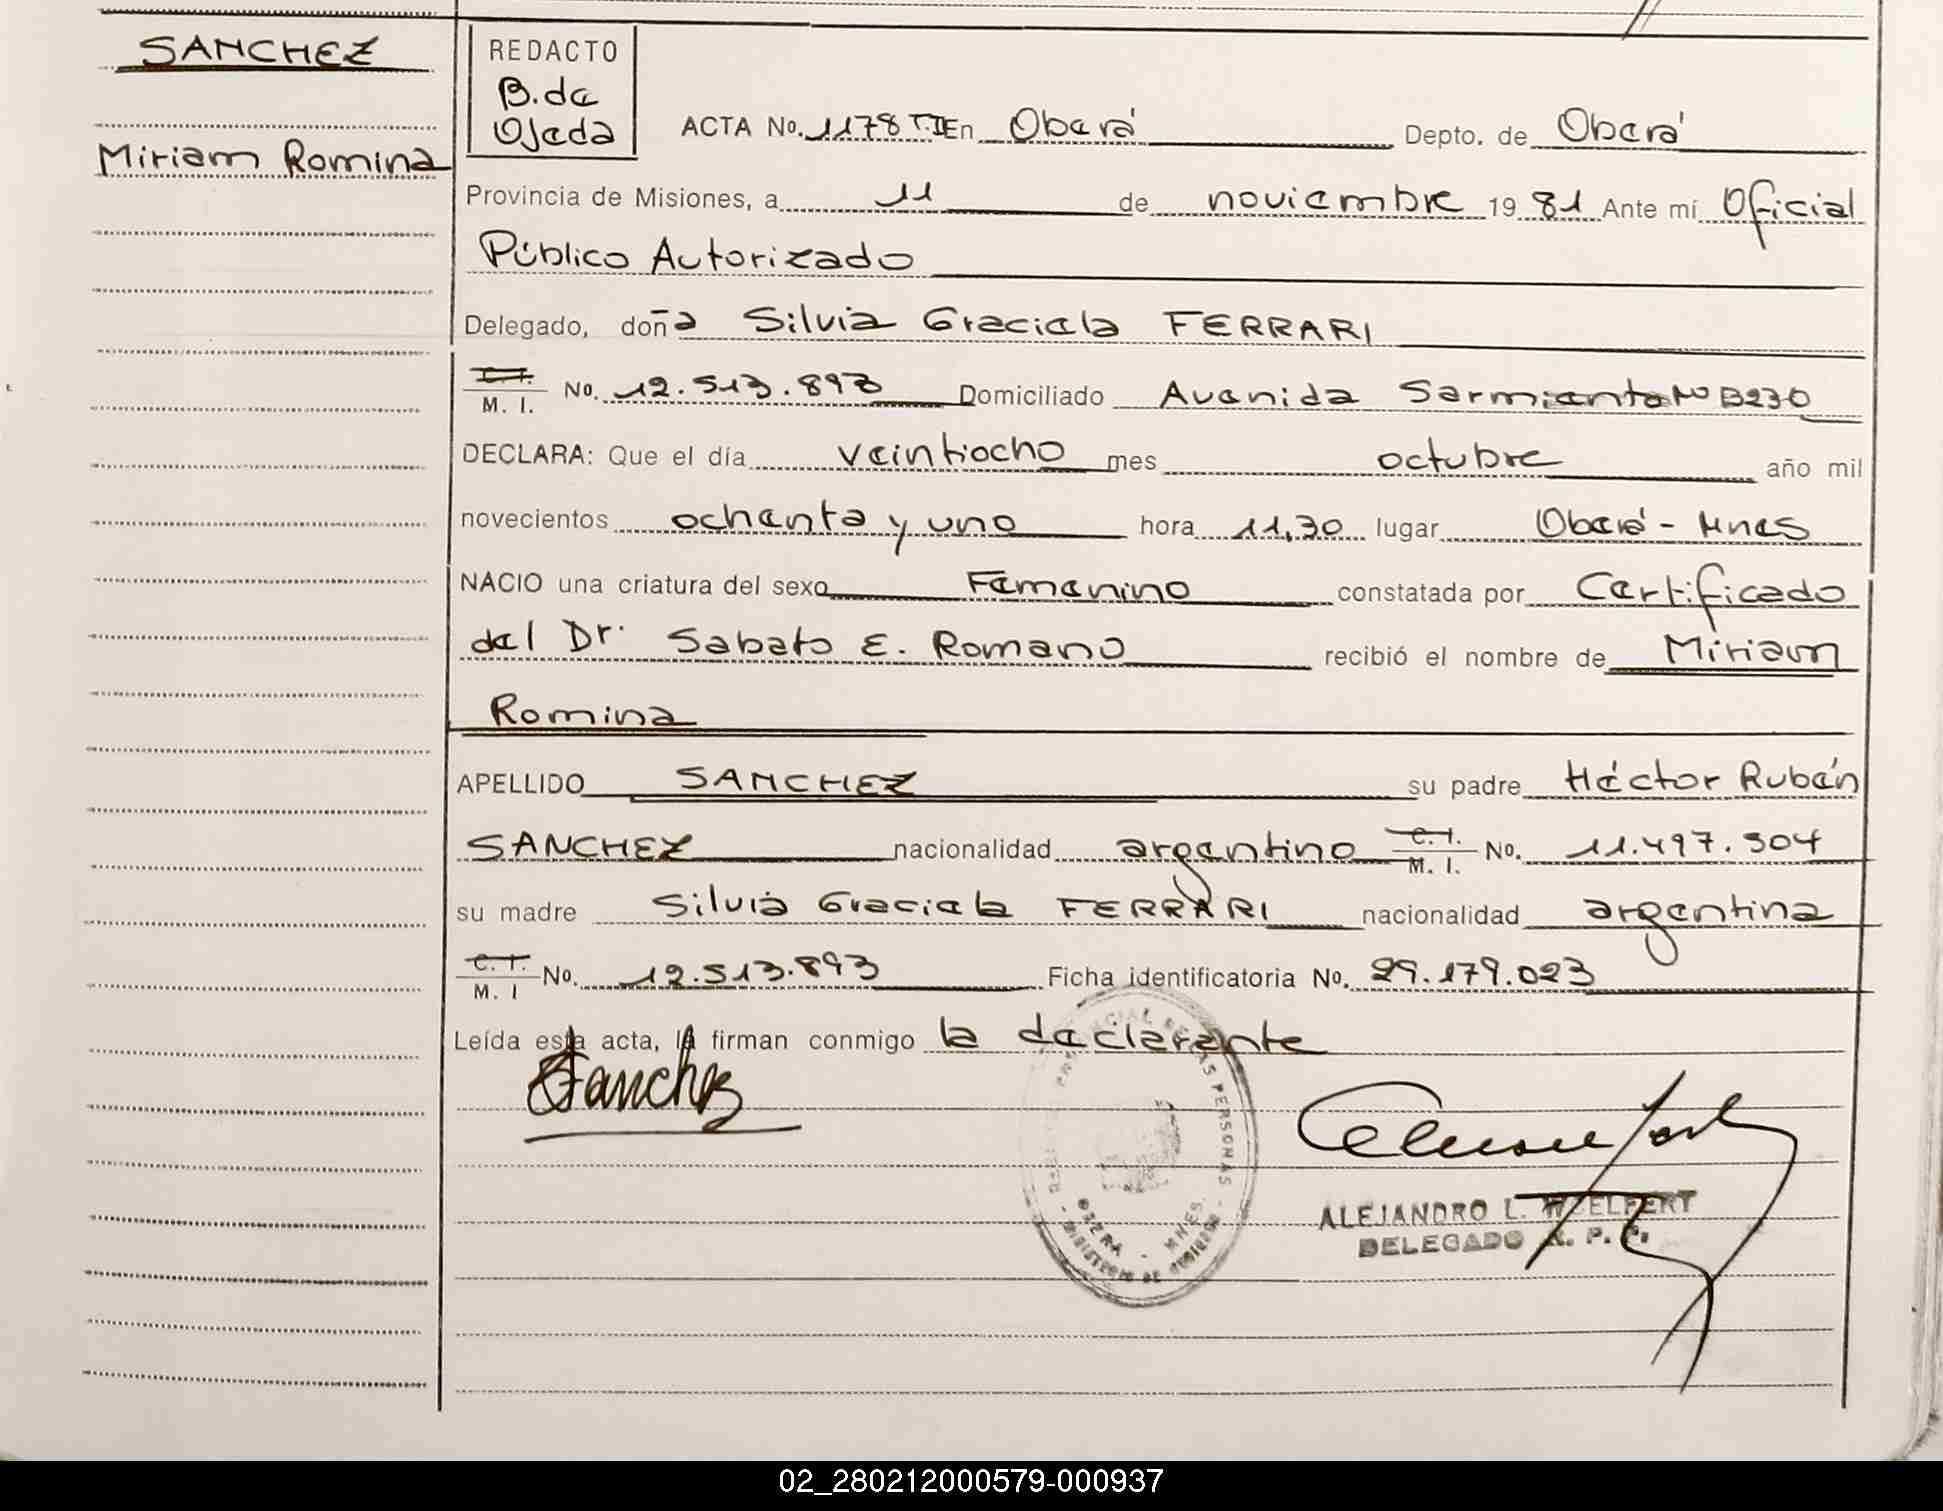 SANCHEZ
Miriam Romina
REDACTO
B.de
Ojeda
ACTA No. 1178 T.II En Oberá Depto. de Oberá
Provincia de Misiones, a 11 de noviembre 19 81 Ante mí Oficial
Público Autorizado
Delegado, doña Silvia Graciela FERRARI
C.I. M. I. No. 12.513.893 Domiciliado Avenida Sarmiento Nº B230
DECLARA: Que el día veintiocho mes octubre año mil
novecientos ochenta y uno hora 11,30 lugar Oberá - Mnes
NACIO una criatura del sexo Femenino constatada por Certificado
del Dr. Sabato E. Romano recibió el nombre de Miriam
Romina
APELLIDO SANCHEZ su padre Héctor Rubén
SANCHEZ nacionalidad argentino C.I. M. I. No. 11.497.504
su madre Silvia Graciela FERRARI nacionalidad argentina
C.I. M. I No. 12.513.893 Ficha identificatoria No. 29.179.023
Leída esta acta, la firman conmigo la declarante
Sanchez
PROVINCIAL DE LAS PERSONAS
OBERA - MNES.
MINISTERIO DE GOBIERNO
ALEJANDRO L. WOELFERT
DELEGADO R. P. P.
02_280212000579-000937